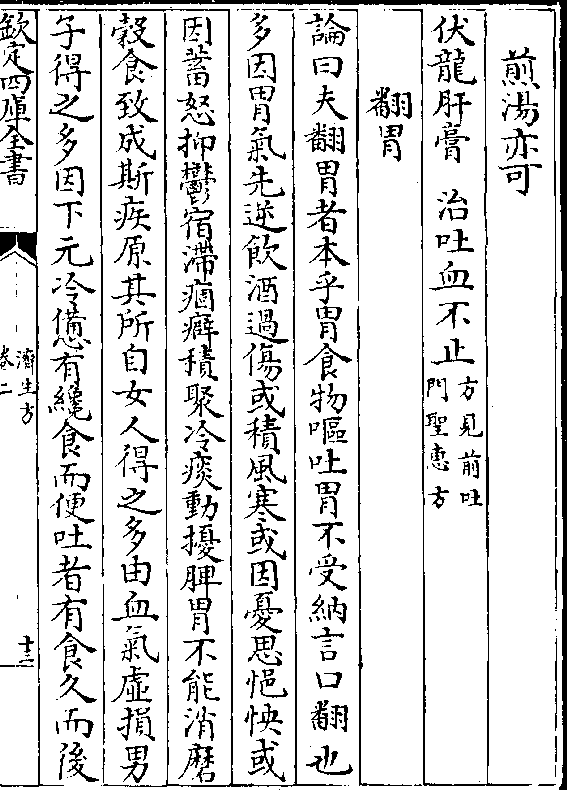 煎湯亦可
伏龍肝膏　治吐血不止方見前吐門聖惠方
翻胃
論曰夫翻胃者本乎胃食物嘔吐胃不受納言口翻也
多因胃氣先逆飲酒過傷或積風寒或因憂思悒怏或
因蓄怒抑鬱宿滯痼癖積聚冷痰動擾脾胃不能消磨
穀食致成斯疾原其所自女人得之多由血氣虛損男
子得之多因下元冷憊有纔食而便吐者有食久而後
欽定四庫全書
濟生方
卷二
十三